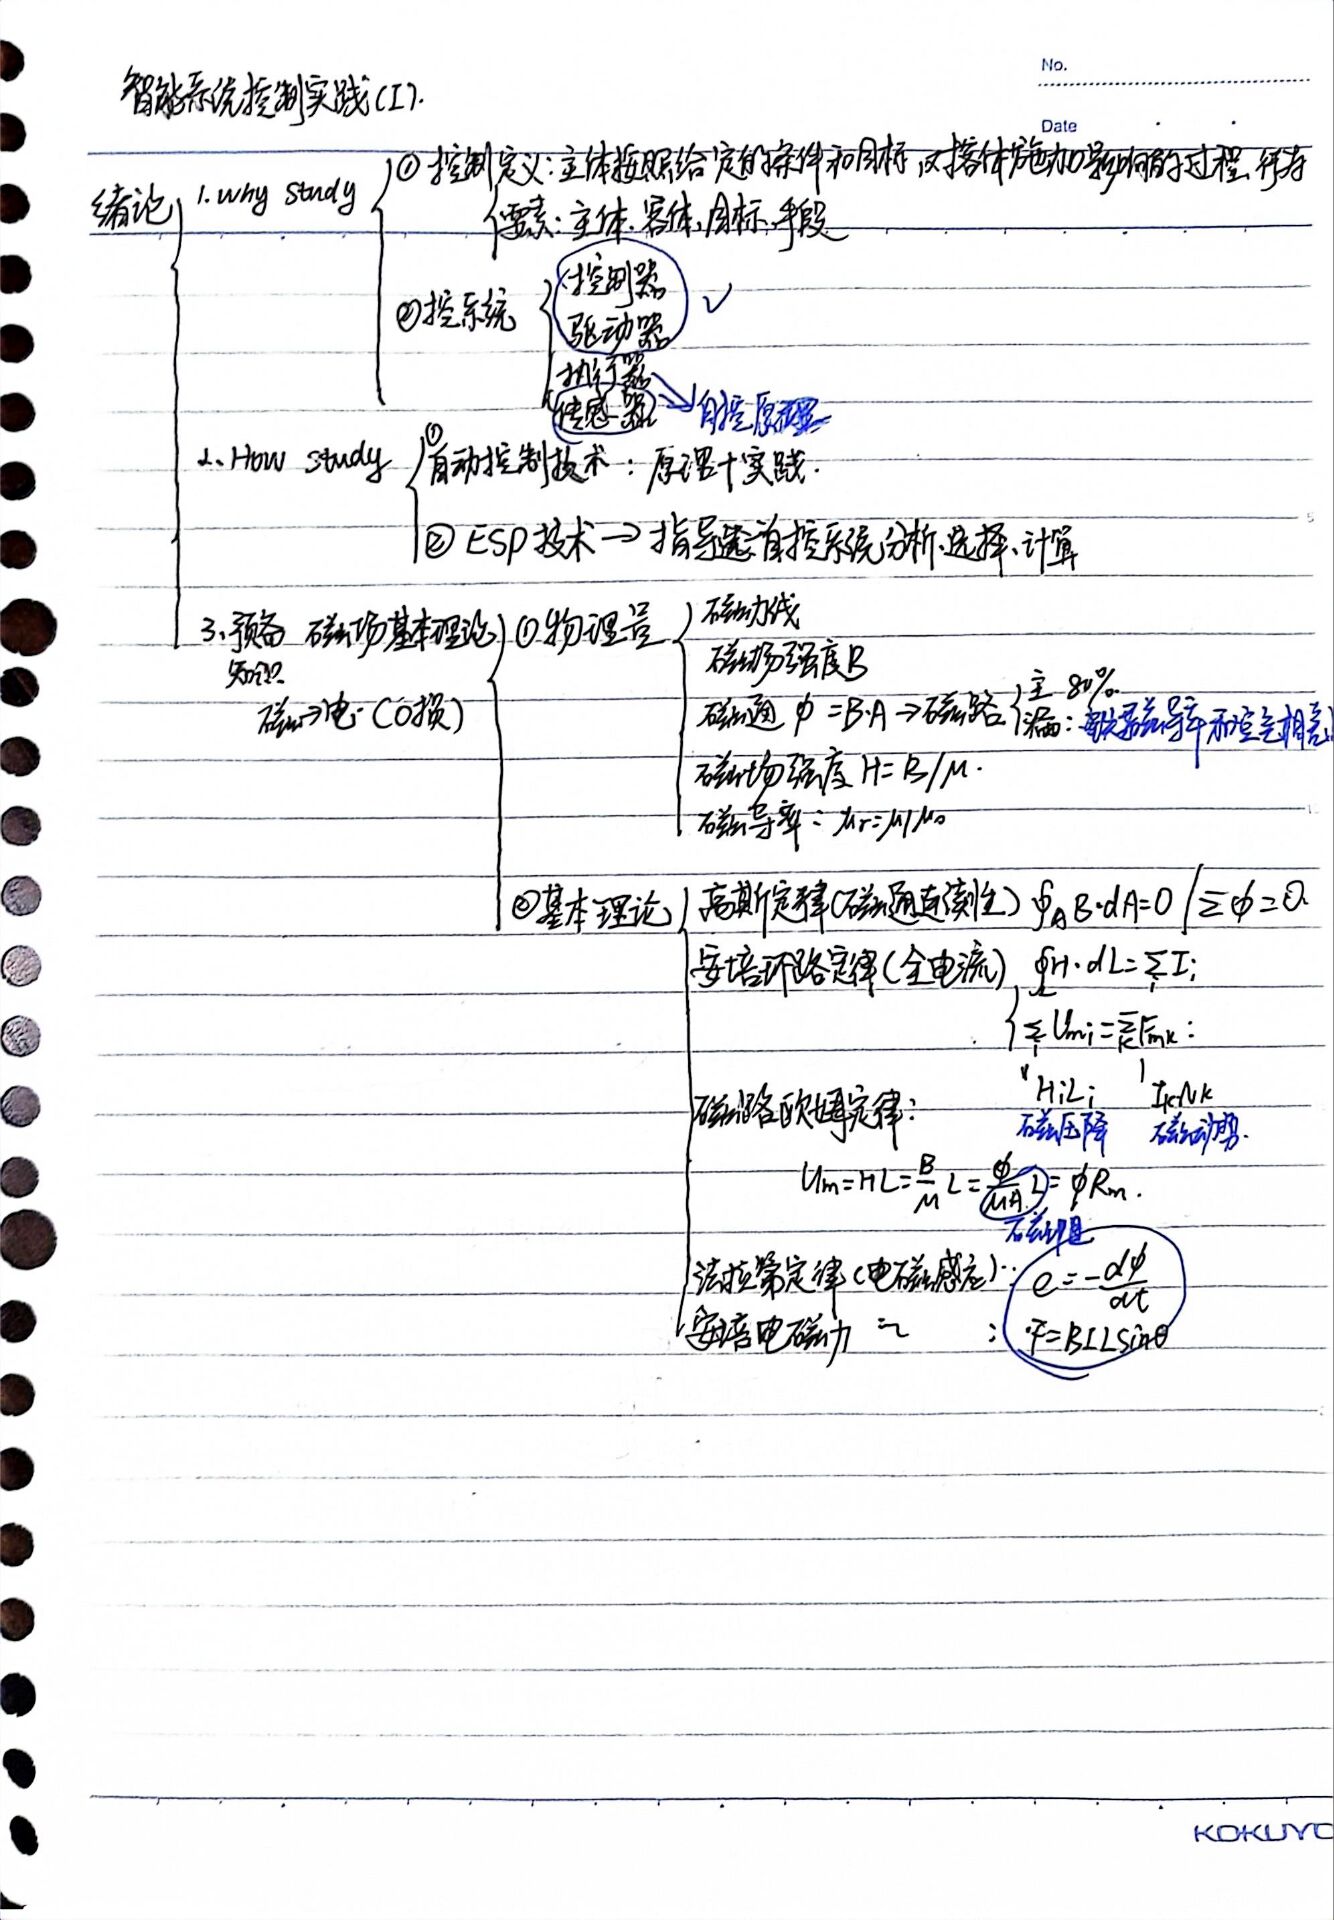 No.
智能系统控制实践(I).
Date
绪论 1. why study ① 控制定义:主体按照给定的条件和目标,对客体施加影响的过程、行为
要素:主体、客体、目标、手段
② 控系统 控制器 ✓
驱动器
执行器
传感器 → 自控原理
2. How study ① 自动控制技术:原理+实践.
② ESP 技术 → 指导 自控系统分析、选择、计算
3. 预备知识 磁场基本理论 ① 物理量 磁力线
磁场强度B
磁→电 (0损)
磁通 φ=B·A→磁路 主 80%
漏: 磁导率和空气相差
磁场强度 H=B/μ.
磁导率: μr=μ/μ0
② 基本理论 高斯定律(磁通连续性) ∮A B·dA=0 / Σφ=0
安培环路定律(全电流) ∮H·dL=ΣIi
Σi Umi=Σk Fmk:
HiLi IkNk
磁路欧姆定律: 磁压降 磁动势.
Um=HL=B/μ L=φ/μA L=φRm.
磁阻
法拉第定律(电磁感应): e=-dφ/dt
安培电磁力 ~ : F=BILsinθ
KOKUYO